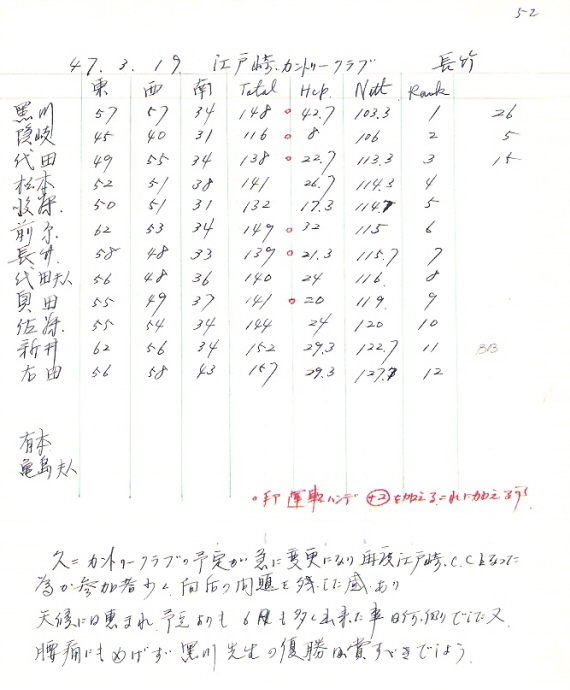 52
47. 3. 19 江戸崎カントリークラブ 長竹
東 西 南 Total Hcp. Nett Rank
黒川 57 57 34 148 42.7 103.3 1 26
隠岐 45 40 31 116 8 106 2 5
代田 49 55 34 138 22.7 113.3 3 15
松本 52 51 38 141 26.7 114.3 4
50 51 31 132 17.3 114.7 5
前原 62 53 34 149 32 115 6
長竹 58 48 33 139 21.3 115.7 7
代田夫人 56 48 36 140 24 116 8
貝田 55 49 37 141 20 119 9
佐藤 55 54 34 144 24 120 10
新井 62 56 34 152 29.3 122.7 11 BB
右田 56 58 43 157 29.3 127.7 12
有本
亀島夫人
印 運車ハンデ +2 を加える
カントリークラブの予定が急に変更になり再度江戸崎C.Cとなった
為か参加者少く 向后の問題を残した感あり
天候には恵まれ 予定よりも 6 も多く出来た事は何 でした 又
腰痛にもめげず 黒川先生の優勝は賞すべきでしょう